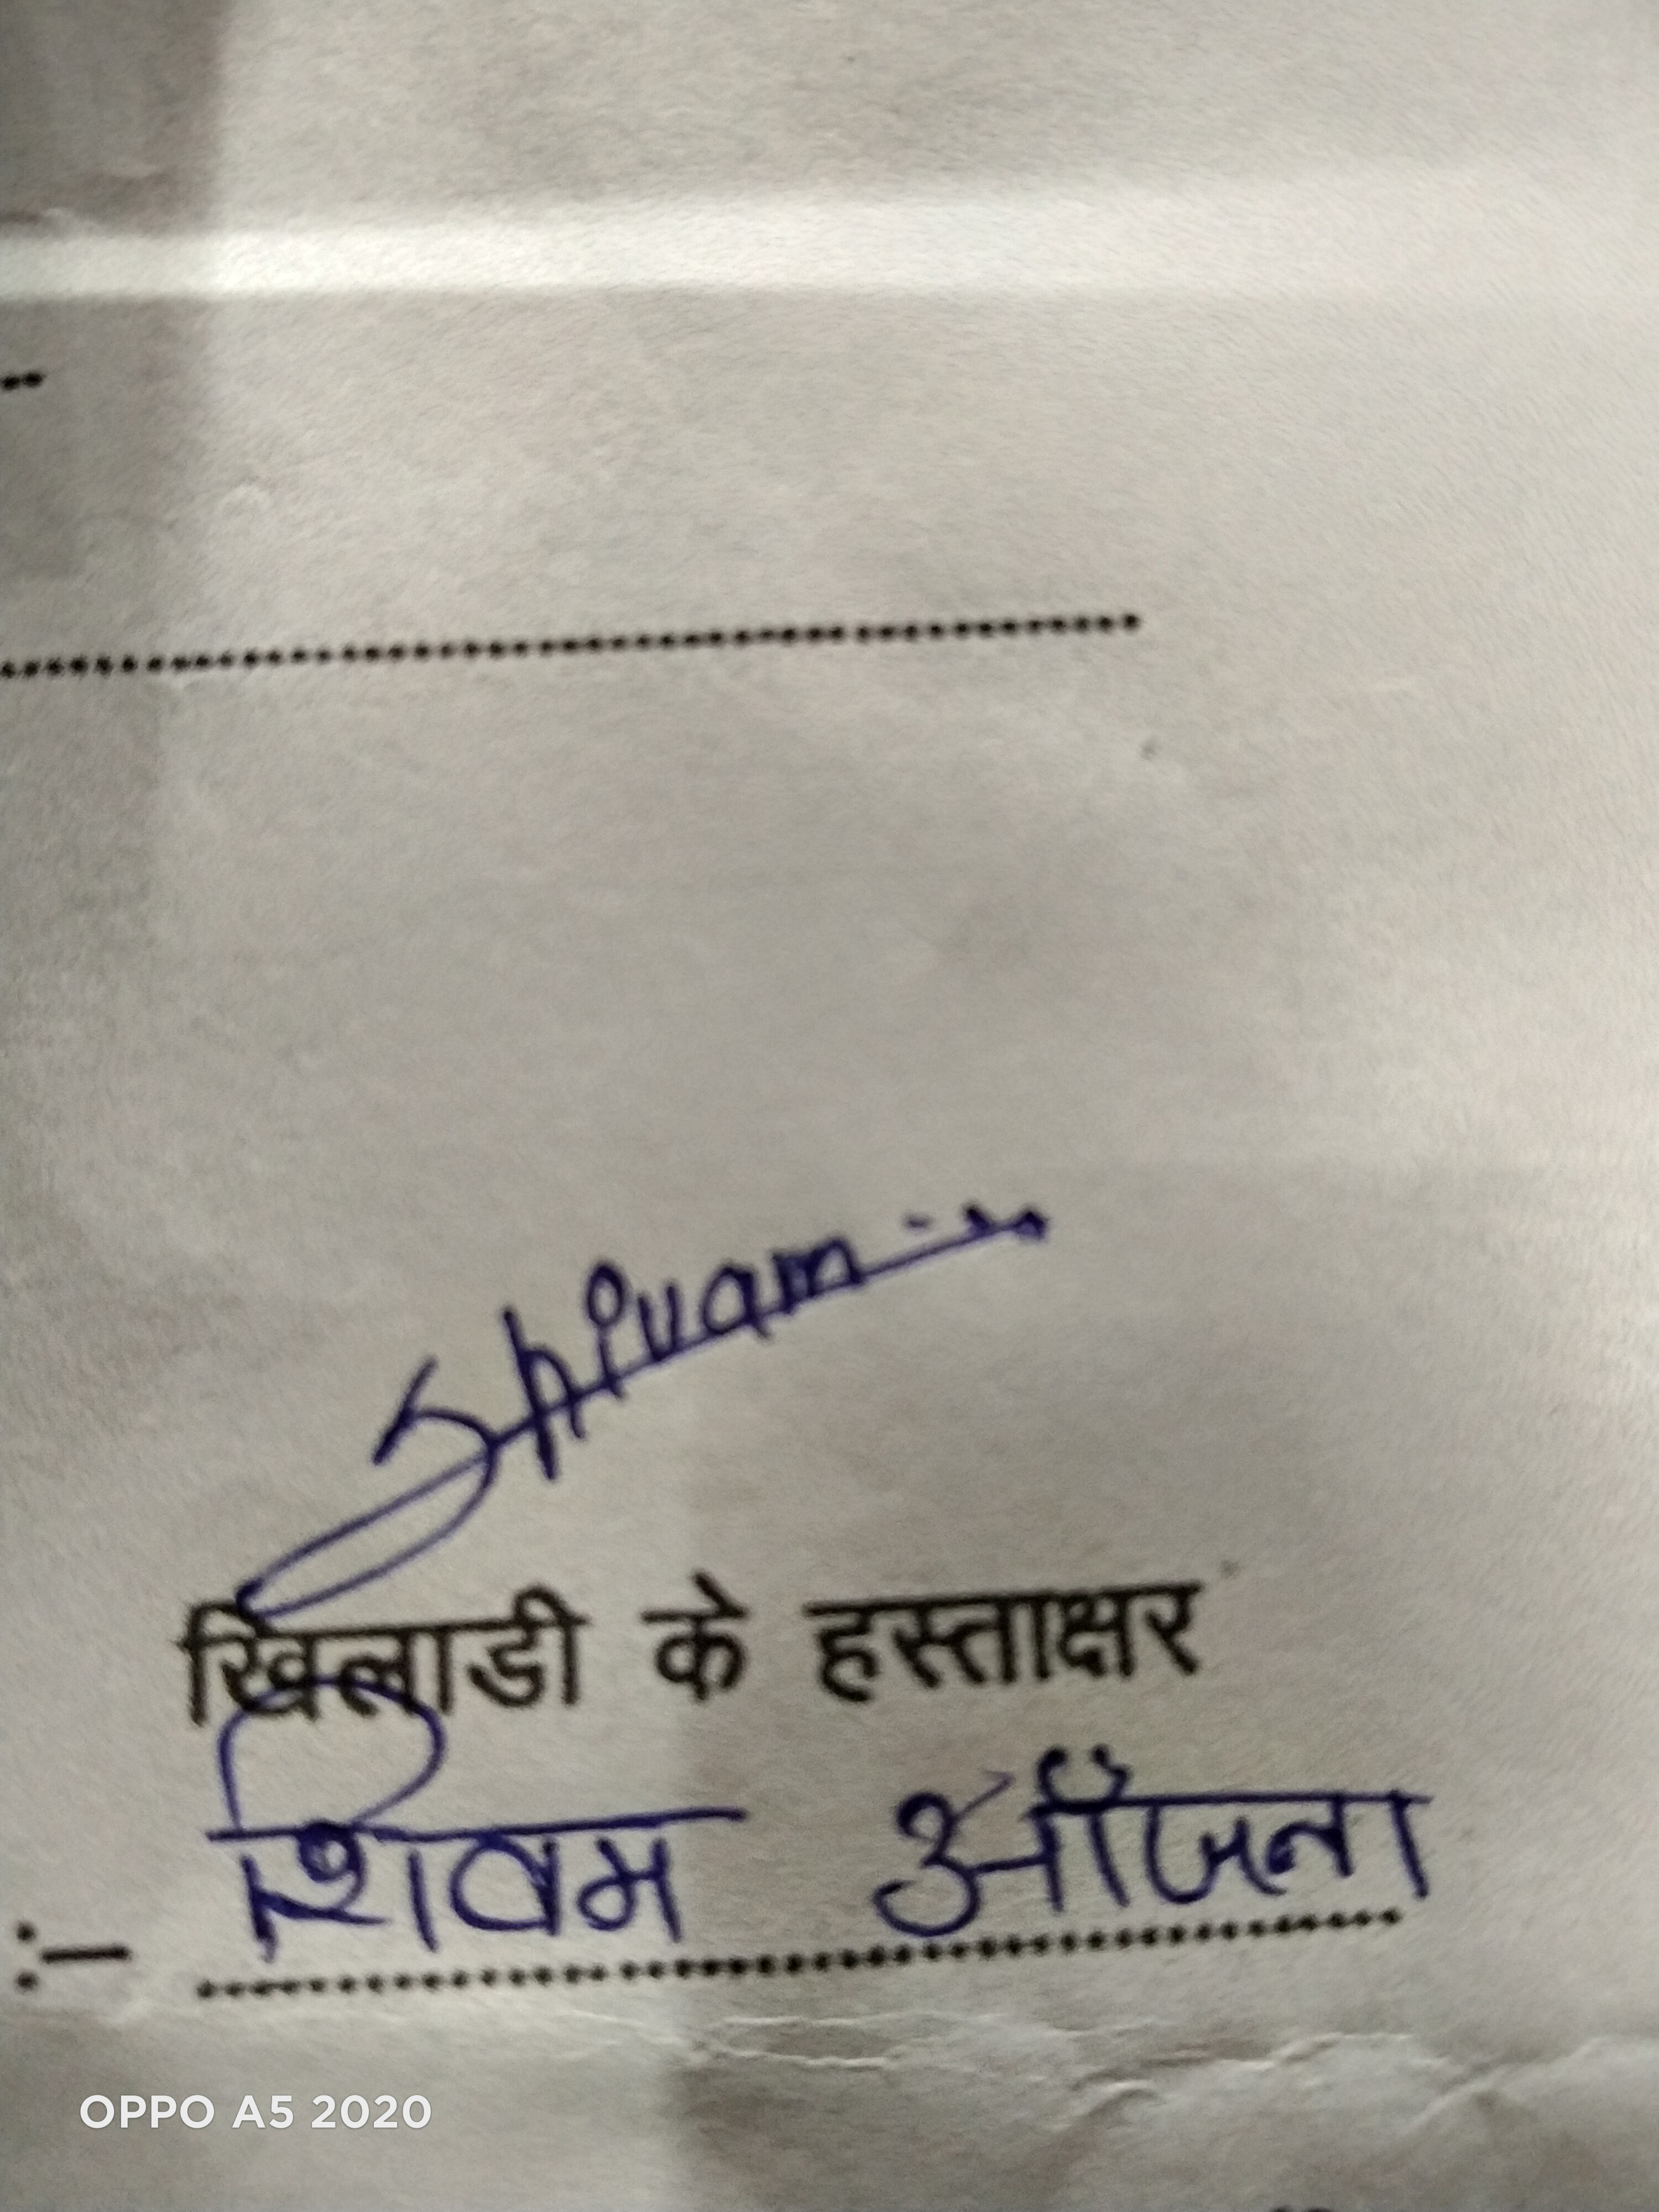 --
................................................
Shivam
खिलाडी के हस्ताक्षर
:— शिवम आँजना
................................................
OPPO A5 2020